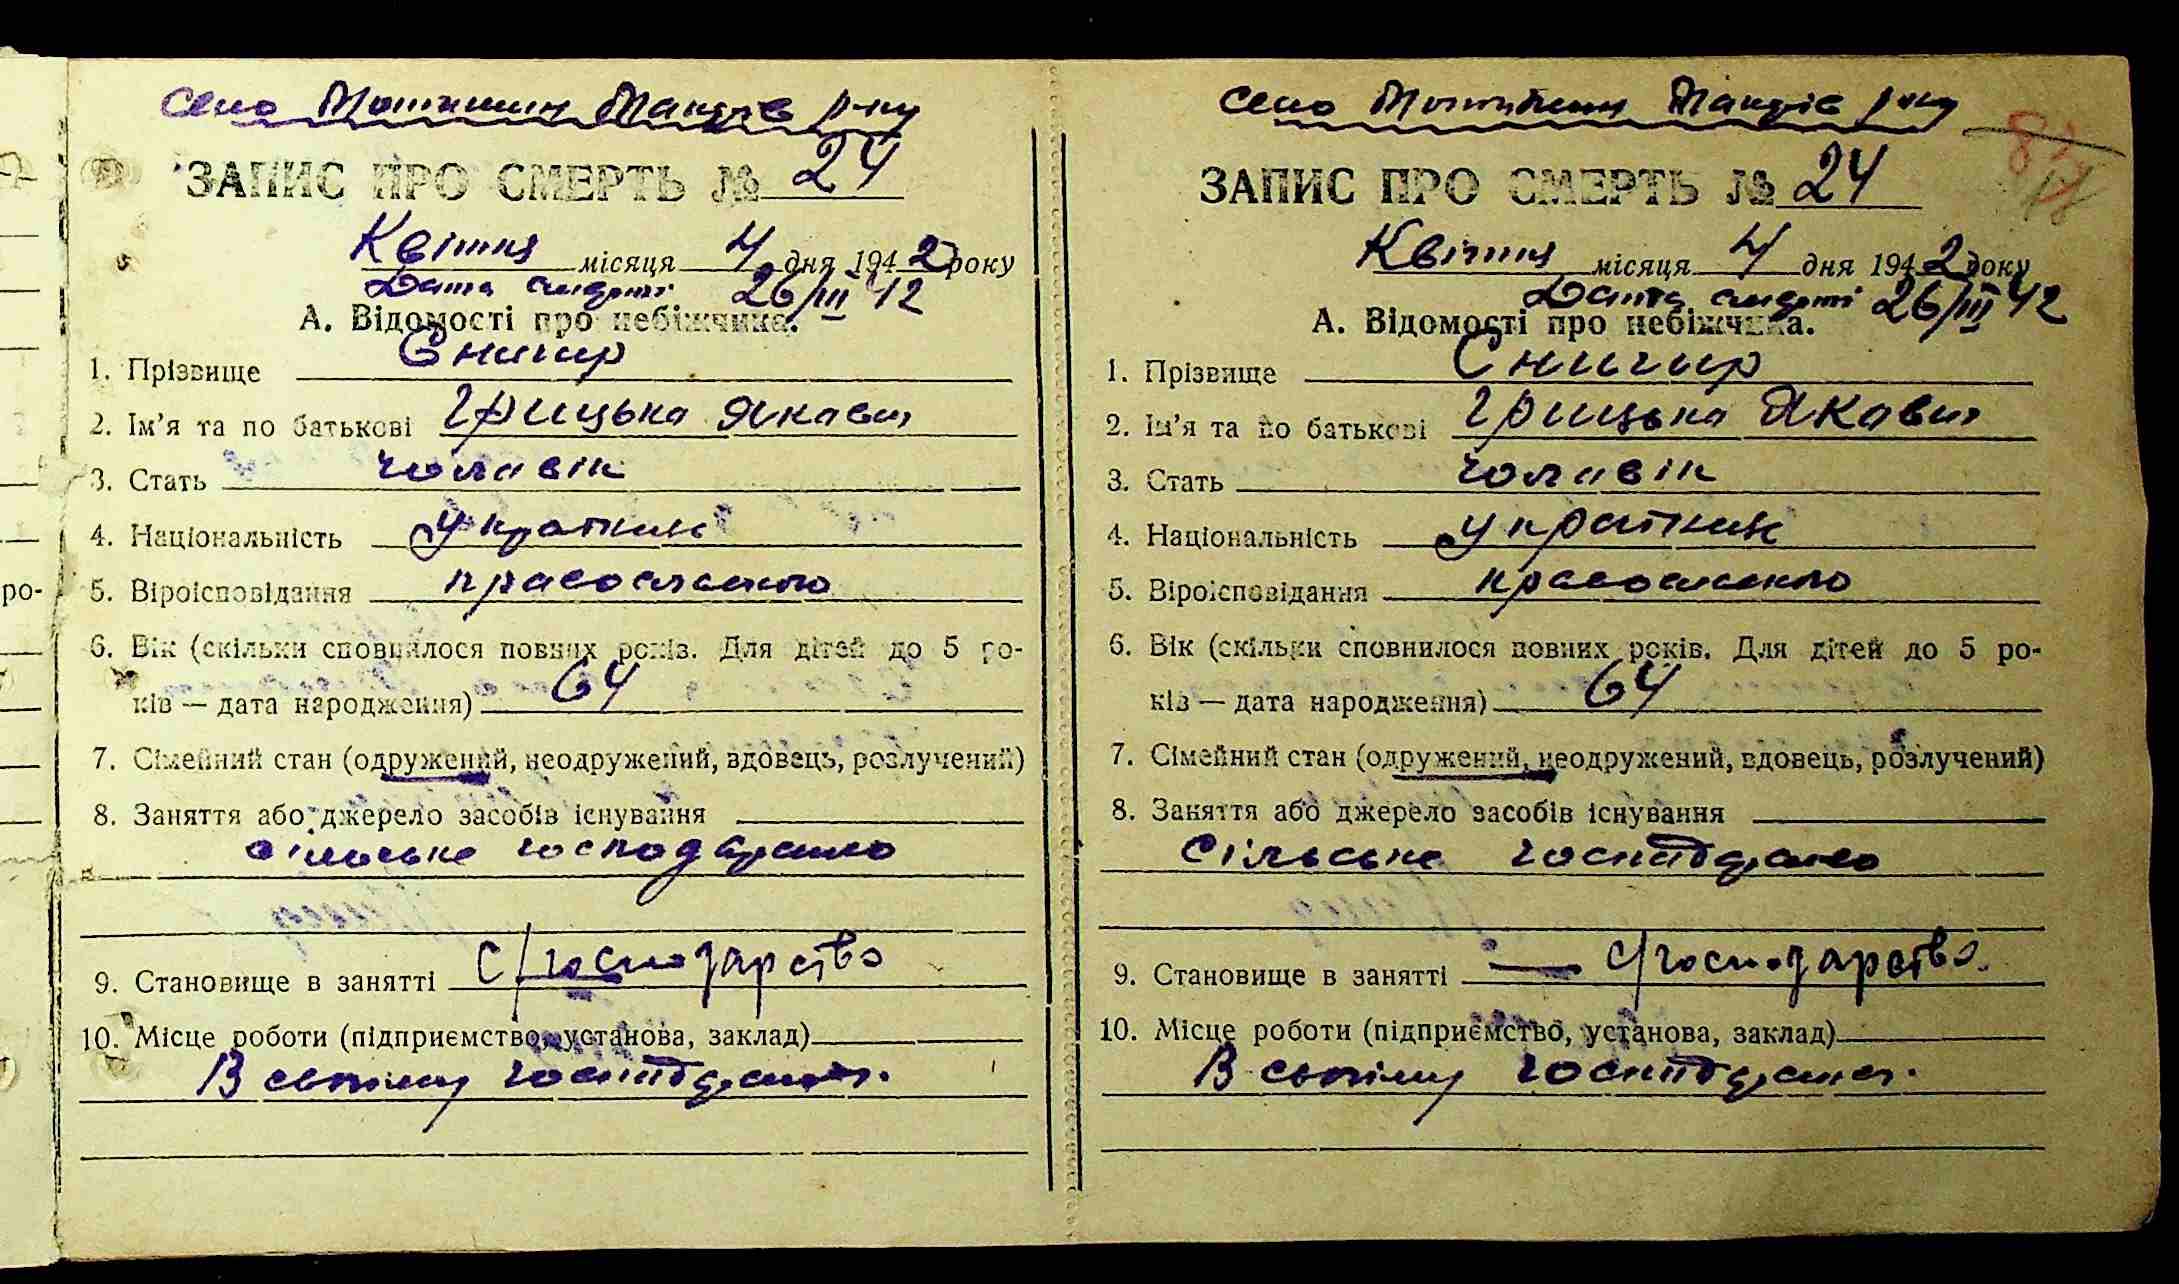 Село Мотижин Макарів р-ну
ЗАПИС ПРО СМЕРТЬ № 24
Квітня місяця 4 дня 1942 року
Дата смерті 26/III 42
А. Відомості про небіжчика.
1. Прізвище Снигир
2. Ім'я та по батькові Грицько Якович
3. Стать чоловік
4. Національність українець
5. Віроісповідання православного
6. Вік (скільки сповнилося повних років. Для дітей до 5 ро-
ків — дата народження) 64
7. Сімейний стан (одружений, неодружений, вдовець, розлучений)
8. Заняття або джерело засобів існування
сільське господарство
9. Становище в занятті с/господарство
10. Місце роботи (підприємство, установа, заклад)
В своїому господарстві.
Село Мотижин Макарів р-ну
ЗАПИС ПРО СМЕРТЬ № 24
Квітня місяця 4 дня 1942 року
Дата смерті 26/III 42
А. Відомості про небіжчика.
1. Прізвище Снигир
2. Ім'я та по батькові Грицько Якович
3. Стать чоловік
4. Національність українець
5. Віроісповідання православного
6. Вік (скільки сповнилося повних років. Для дітей до 5 ро-
ків — дата народження) 64
7. Сімейний стан (одружений, неодружений, вдовець, розлучений)
8. Заняття або джерело засобів існування
Сільське господарство
9. Становище в занятті — с/господарство.
10. Місце роботи (підприємство, установа, заклад)
В своїому господарстві.
ро-